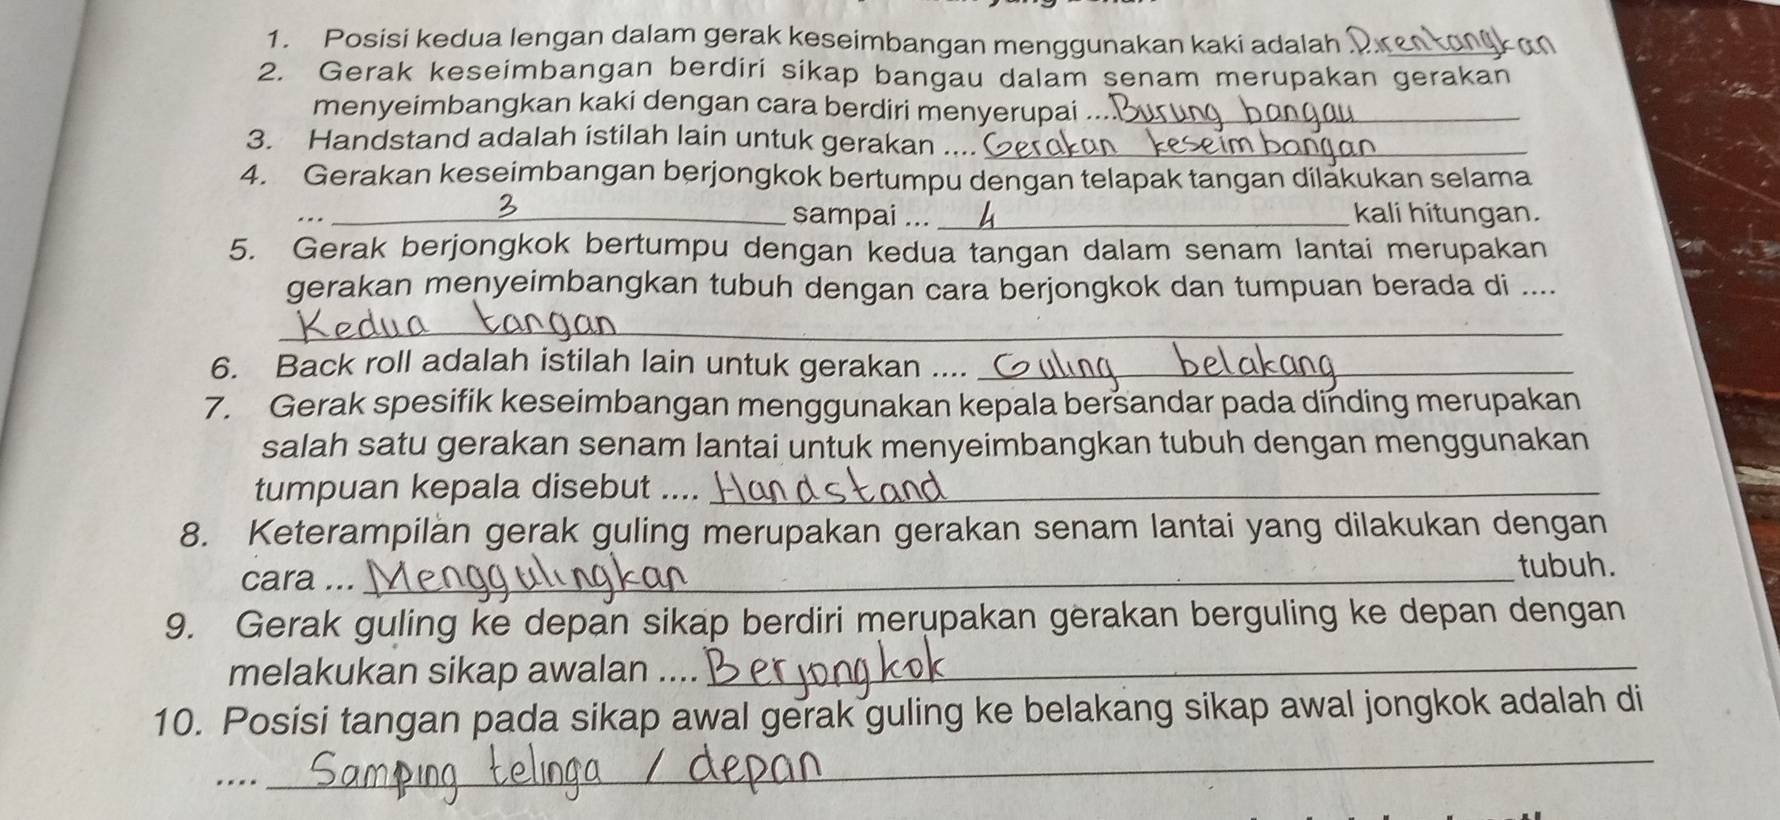 1. Posisi kedua lengan dalam gerak keseimbangan menggunakan kaki adalah Direntangkan
2. Gerak keseimbangan berdiri sikap bangau dalam senam merupakan gerakan
menyeimbangkan kaki dengan cara berdiri menyerupai .... Burung bangau
3. Handstand adalah istilah lain untuk gerakan .... Gerakan keseimbangan
4. Gerakan keseimbangan berjongkok bertumpu dengan telapak tangan dilakukan selama
... 3 sampai ... 4 kali hitungan.
5. Gerak berjongkok bertumpu dengan kedua tangan dalam senam lantai merupakan
gerakan menyeimbangkan tubuh dengan cara berjongkok dan tumpuan berada di ....
Kedua tangan
6. Back roll adalah istilah lain untuk gerakan .... Guling belakang
7. Gerak spesifik keseimbangan menggunakan kepala bersandar pada dinding merupakan
salah satu gerakan senam lantai untuk menyeimbangkan tubuh dengan menggunakan
tumpuan kepala disebut .... Handstand
8. Keterampilan gerak guling merupakan gerakan senam lantai yang dilakukan dengan
cara ... Menggulingkan tubuh.
9. Gerak guling ke depan sikap berdiri merupakan gerakan berguling ke depan dengan
melakukan sikap awalan .... Berjongkok
10. Posisi tangan pada sikap awal gerak guling ke belakang sikap awal jongkok adalah di
.... Samping telinga / depan